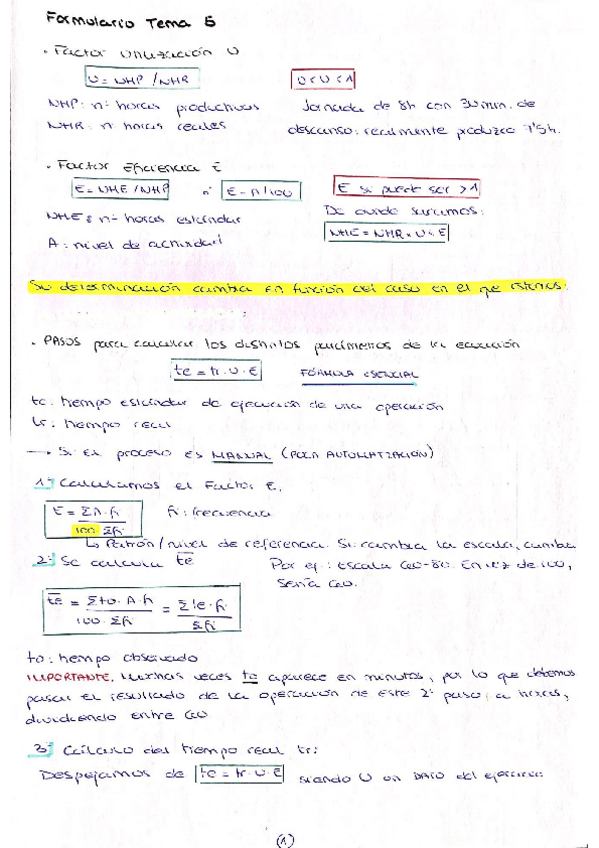 Formulario Tema 5
· Factor utilización U
U = NHP / NHR   0 < U < 1
NHP: nº horas productivas   Jornada de 8h con 30 min. de
NHR: nº horas reales   descanso: realmente produzco 7'5h.
· Factor Eficiencia E
E = NHE / NHP   o   E = A/100   E si puede ser > 1
NHE: nº horas estándar   De donde sacamos:
A: nivel de actividad   NHE = NHR × U × E
Su determinación cambia en función del caso en el que estemos:
· PASOS para calcular los distintos parámetros de la ecuación
te = tr · U · E   FÓRMULA ESENCIAL
te: tiempo estándar de ejecución de una operación
tr: tiempo real
→ Si el proceso es MANUAL (POCA AUTOMATIZACIÓN)
1º Calculamos el Factor E.
E = ΣA·fi / 100 · Σfi   fi: frecuencia
↳ Patrón/nivel de referencia. Si cambia la escala, cambia
2º Se calcula te   Por ej.: Escala 60-80. En vez de 100,
sería 60.
te = Σto · A · fi / 100 · Σfi = Σte · fi / Σfi
to: tiempo observado
IMPORTANTE. Muchas veces to aparece en minutos, por lo que debemos
pasar el resultado de la operación de este 2º paso, a horas,
dividiendo entre 60
3º Cálculo del tiempo real tr:
Despejamos de te = tr · U · E siendo U un DATO del ejercicio
1